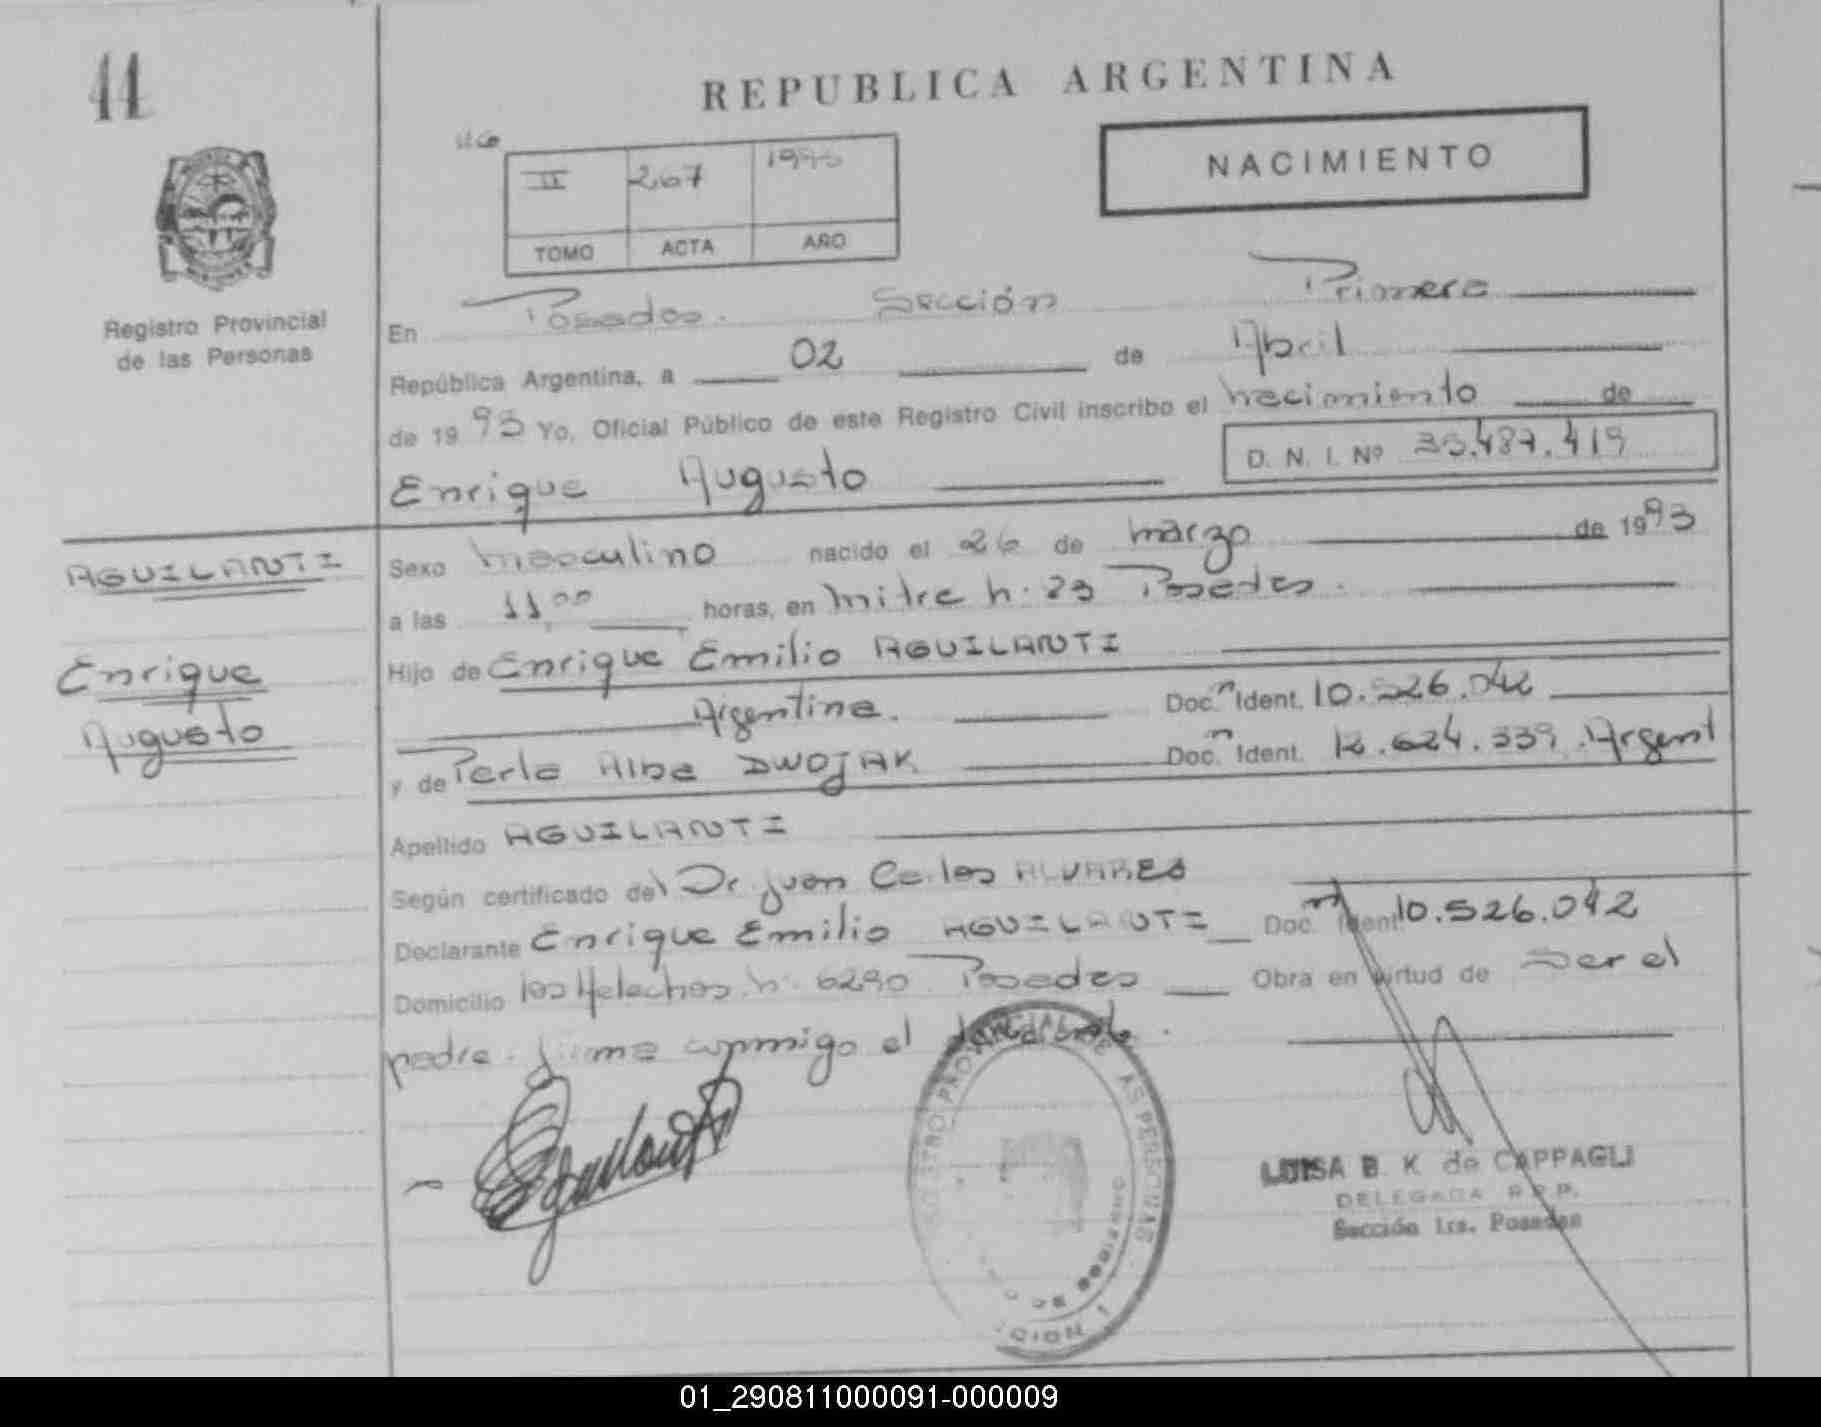 44
REPUBLICA ARGENTINA
NACIMIENTO
II 267 1993
TOMO ACTA AÑO
Registro Provincial
de las Personas
En Posadas. Sección Primera
República Argentina, a 02 de Abril
de 1993 Yo, Oficial Público de este Registro Civil inscribo el nacimiento de
D. N. I. Nº 33.487.419
Enrique Augusto
AGUILANTI
Enrique
Augusto
Sexo masculino nacido el 26 de marzo de 1993
a las 11,00 horas, en Mitre n. 23 Posadas.
Hijo de Enrique Emilio AGUILANTI
Argentina. Doc.n Ident. 10.526.042
y de Perla Alba DWOJAK Doc.n Ident. 12.624.339 Argent
Apellido AGUILANTI
Según certificado del Dr Juan Carlos ALVARES
Declarante Enrique Emilio AGUILANTI Doc. Ident. 10.526.042
Domicilio los Helechos n. 6290 Posadas Obra en virtud de Ser el
padre. firma conmigo el
LUISA B. K. de CAPPAGLI
DELEGADA R.P.P.
Sección 1ra. Posadas
01_290811000091-000009